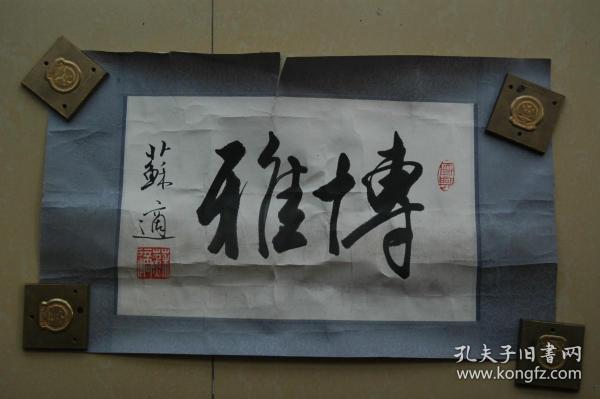 博雅
蘇適
孔夫子旧書网
www.kongfz.com